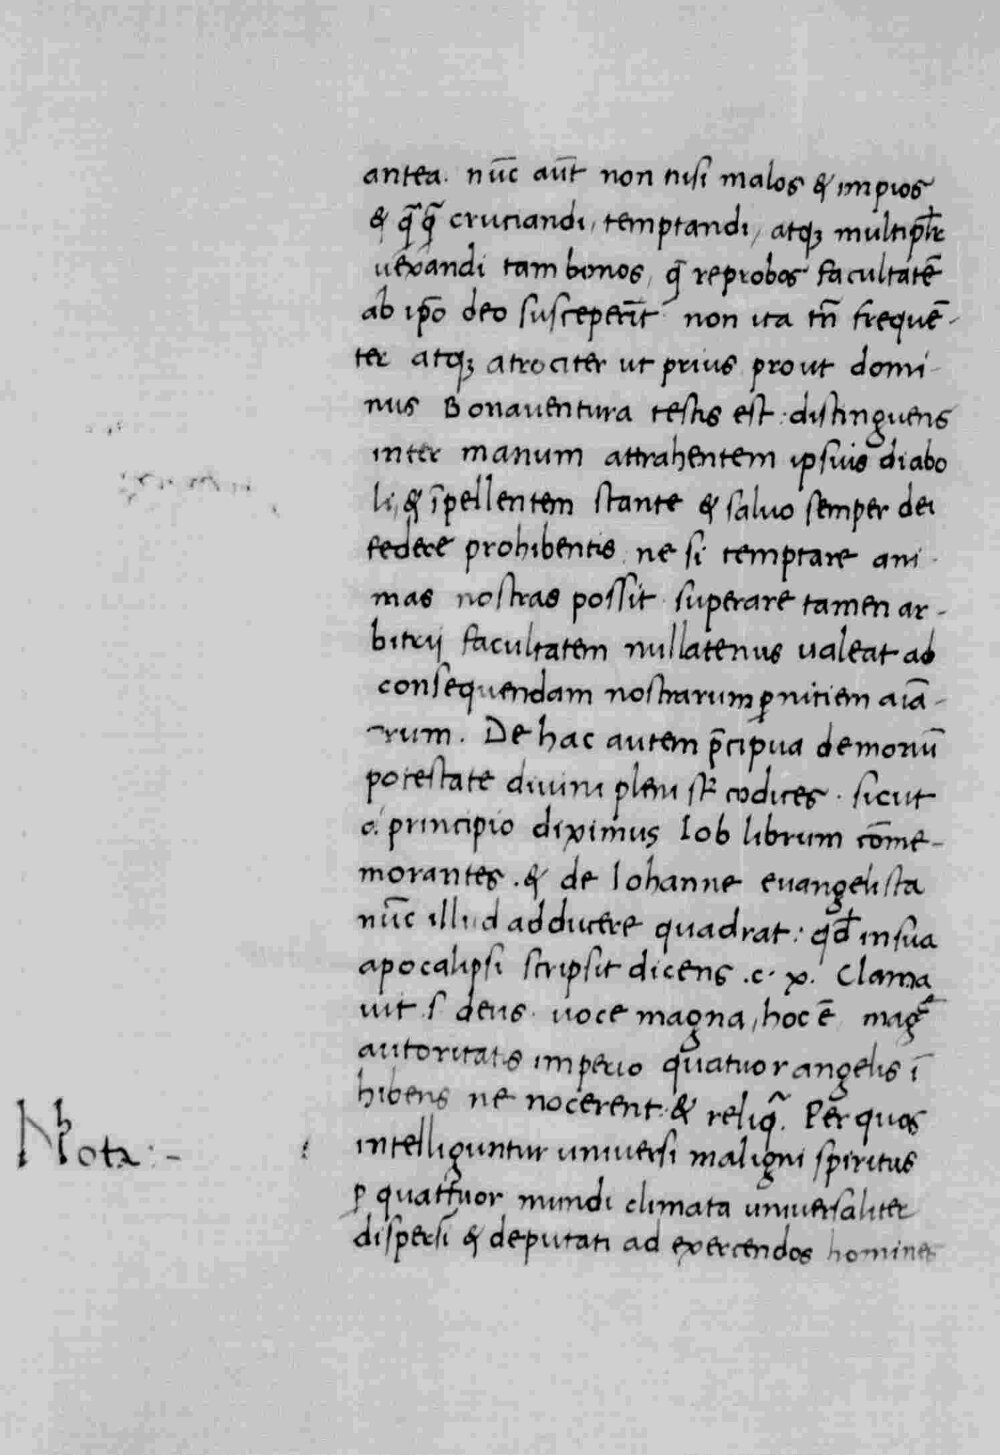 antea. nūc aūt non nisi malos & impios
& qͣqͣ cruciandi, temptandi, atqꝫ multiplr̄
uexandi tam bonos, qͣ reprobos facultatē
ab ip̄o deo susceperīt non ita tn̄ frequē-
ter atqꝫ atrociter ut prius prout domi-
nus Bonauentura testis est: distinguens
inter manum attrahentem ipsius diabo
li, & īpellentem stante & saluo semper dei
federe prohibentis ne si temptare ani-
mas nostras possit superare tamen ar-
bitrij facultatem nullatenus ualeat ad
consequendam nostrarum ꝑnitiem aīa-
rum. De hac autem p̄cipua demonū
potestate diuini pleni st̄ codices. sicut
a principio diximus Iob librum cōme-
morantes. & de Iohanne euangelista
nūc illud adducere quadrat: qđ in sua
apocalipsi scripsit dicens .c. x. Clama
uit .s. deus uoce magna, hoc ē magᷓ
autoritatis imperio quatuor angelis ī
hibens ne nocerent & reliqͣ. Per quos
Nota:-
intelliguntur uniuersi maligni spiritus
ꝑ quattuor mundi climata uniuersaliter
dispersi & deputati ad exercendos homines